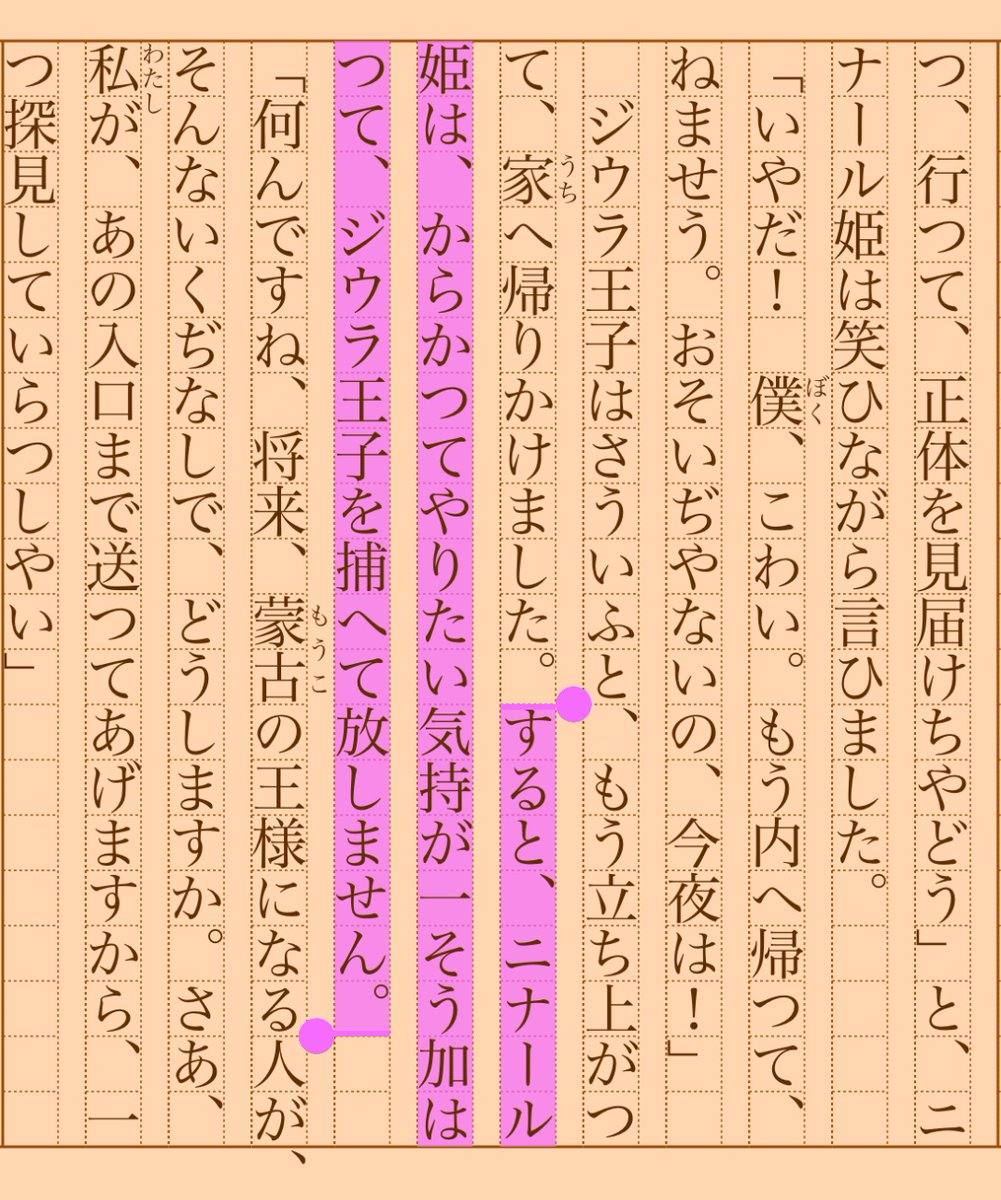 つ、行つて、正体を見届けちやどう」と、ニ
ナール姫は笑ひながら言ひました。
「いやだ！　僕、こわい。もう内へ帰つて、
ぼく
ねませう。おそいぢやないの、今夜は！」
ジウラ王子はさういふと、もう立ち上がつ
て、家へ帰りかけました。すると、ニナール
うち
姫は、からかつてやりたい気持が一そう加は
つて、ジウラ王子を捕へて放しません。
「何んですね、将来、蒙古の王様になる人が、
もうこ
そんないくぢなしで、どうしますか。さあ、
私が、あの入口まで送つてあげますから、一
わたし
つ探見していらつしやい」